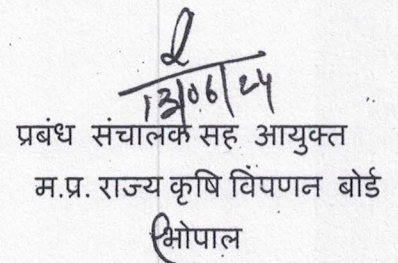 13/06/24
प्रबंध संचालक सह आयुक्त
म.प्र. राज्य कृषि विपणन बोर्ड
भोपाल